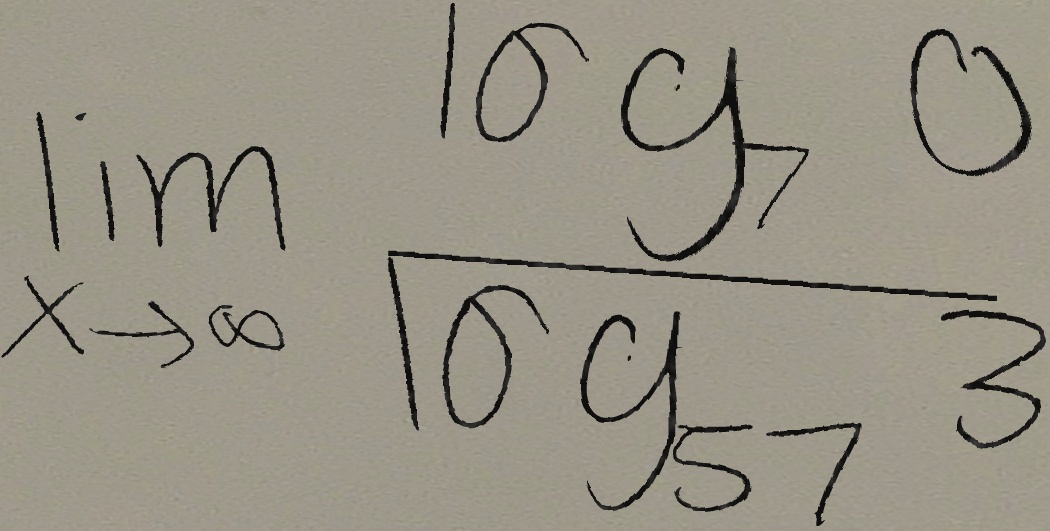 lim x→∞ log₇ 0 / log₅₇ 3